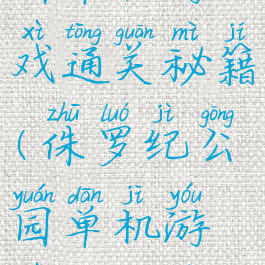 xì tōng guān mì jí
戏通关秘籍
zhū luó jì gōng
(侏罗纪公
yuán dān jī yóu
园单机游